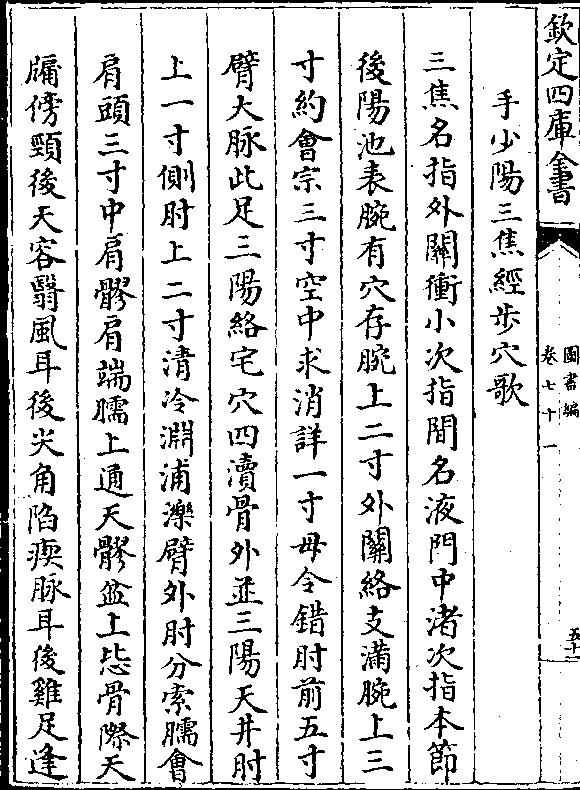 欽定四庫全書
圖書編
卷七十一
五十一
手少陽三焦經步穴歌
三焦名指外關衝小次指間名液門中渚次指本節
後陽池表腕有穴存腕上二寸外關絡支滿腕上三
寸約會宗三寸空中求消詳一寸毋令錯肘前五寸
臂大脉此足三陽絡宅穴四瀆骨外並三陽天井肘
上一寸側肘上二寸清冷淵浦濼臂外肘分索臑會
肩頭三寸中肩髎肩端臑上通天髎盆上毖骨際天
牖傍頸後天容翳風耳後尖角陷瘈脉耳後雞足逢